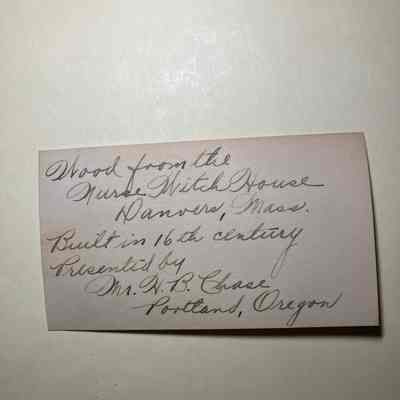 Wood from the
Nurse Witch House
Danvers, Mass.
Built in 16th century
Presented by
Mr. H. B. Chase
Portland, Oregon